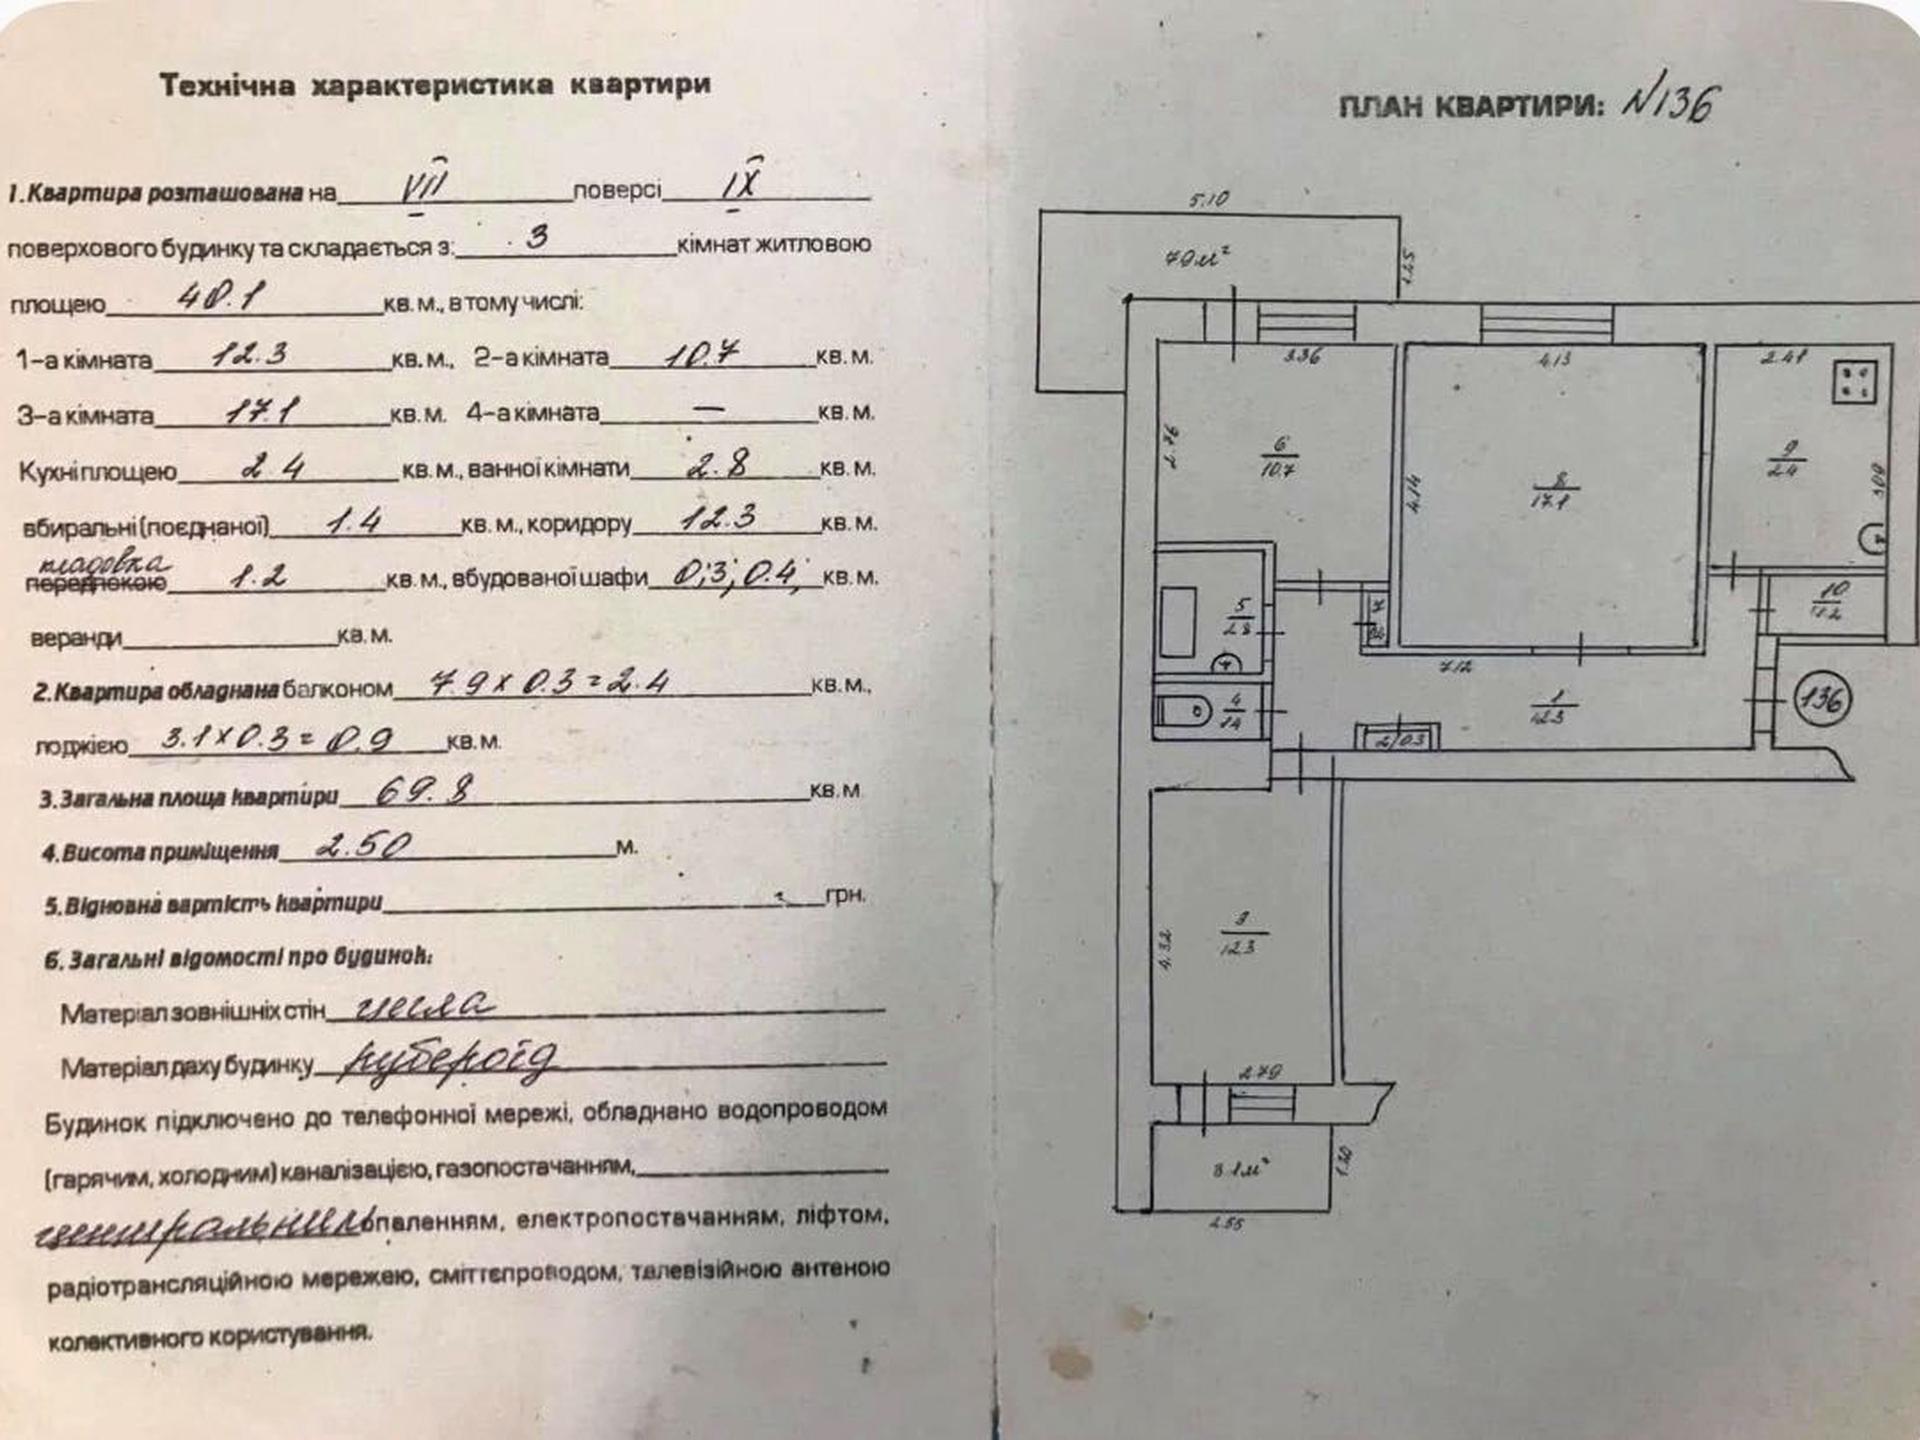 Технічна характеристика квартири
1. Квартира розташована на VII поверсі IX
поверхового будинку та складається з: 3 кімнат житловою
площею 40.1 кв. м., в тому числі:
1-а кімната 12.3 кв. м., 2-а кімната 10.7 кв. м.
3-а кімната 17.1 кв. м. 4-а кімната — кв. м.
Кухні площею 2.4 кв. м., ванної кімнати 2.8 кв. м.
вбиральні (поєднаної) 1.4 кв. м., коридору 12.3 кв. м.
кладовка
передпокою 1.2 кв. м., вбудованої шафи 0,3; 0.4; кв. м.
веранди кв. м.
2. Квартира обладнана балконом 7.9 x 0.3 = 2.4 кв. м.,
лоджією 3.1 x 0.3 = 0.9 кв. м.
3. Загальна площа квартири 69.8 кв. м
4. Висота приміщення 2.50 м.
5. Відновна вартість квартири грн.
6. Загальні відомості про будинок:
Матеріал зовнішніх стін цегла
Матеріал даху будинку рубероїд
Будинок підключено до телефонної мережі, обладнано водопроводом
(гарячим, холодним) каналізацією, газопостачанням,
центральним опаленням, електропостачанням, ліфтом,
радіотрансляційною мережею, сміттєпроводом, телевізійною антеною
колективного користування.
ПЛАН КВАРТИРИ: N136
5.10
7.9 м²
1.25
3.36
4.13
2.41
2.76
6
10.7
4.14
8
17.1
9
2.4
10
1.2
5
2.8
7
7.12
136
4
1.4
1
12.3
2/0.3
4.32
3
12.3
2.79
3.1 м²
1.20
2.55